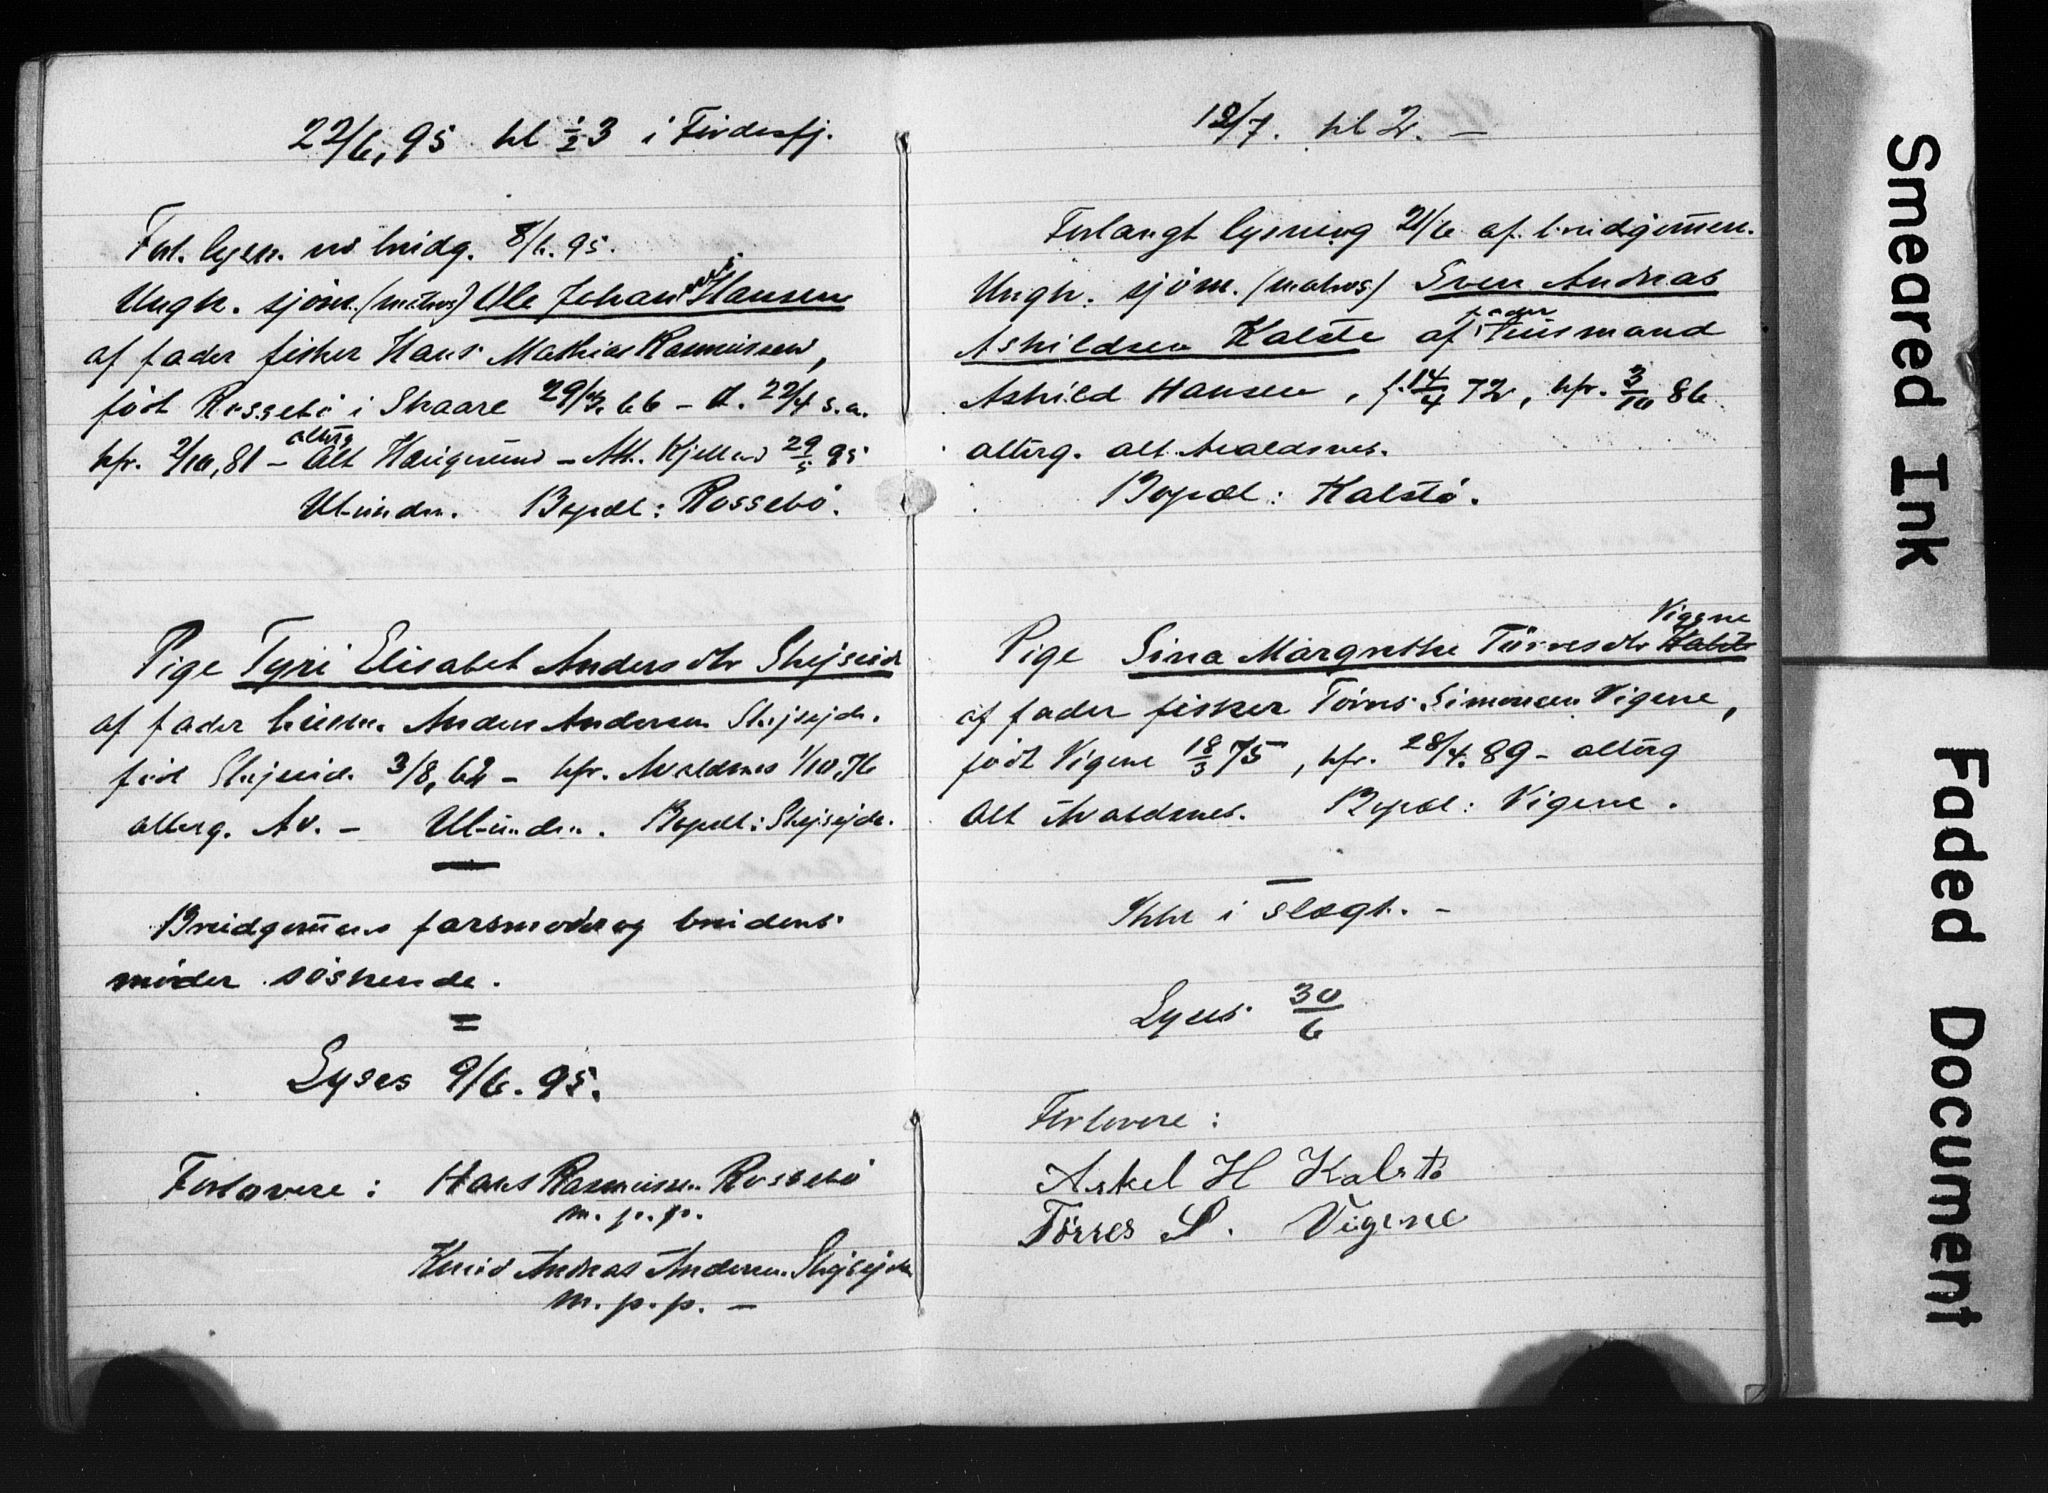 22/6, 95 kl ½3 i Fördesfj.
Forl. lysn. ved brudg. 8/6. 95.
Ungk. sjöm. (matros) Ole Johan Hansen
af fader fisker Hans Mathias Rasmussen,
födt Rossebö i Skaare 29/3. 66 – d. 22/4 s.a.
kfr. 2/10, 81 – altorg
Att Haugesund – Att. Kjelland 29/5 95
Ubunden. Bopæl: Rossebö.
Pige Tyri Elisabet Andersdtr Skejseid
af fader husm. Anders Andersen Skejsejde.
föd Skejseid. 3/8, 62 – kfr. Avaldsnes 1/10. 76
alterg. Av. – Ubunden. Bopæl: Skejsejde.
Brudgommens farsmoder og brudens
moder söskende.
=
Lyses 9/6. 95.
Forlovere: Hans Rasmussen Rossebö
m. p. p.
Knud Andreas Andersen Skejsejde
m. p. p. –
12/7. kl 2. –
Forlangt lysning 21/6 af brudgommen.
Ungk. sjöm. (matros) Sven Andreas
Askildsen Kalstö af fader husmand
Askild Hansen, f. 14/4 72, kfr. 3/10 86
alterg. att. Avaldsnes.
Bopæl: Kalstö.
Vigene
Pige Sina Margrethe Törresdtr Kalstö
af fader fisker Törres Simonsen Vigene,
födt Vigene 18/3 75, kfr. 28/4. 89 – altorg
Att Avaldsnes. Bopæl: Vigene.
Ikke i slægt. –
Lyses 30/6
Forlovere:
Askel H Kalstö
Törres S. Vigene
Smeared Ink
Faded Document